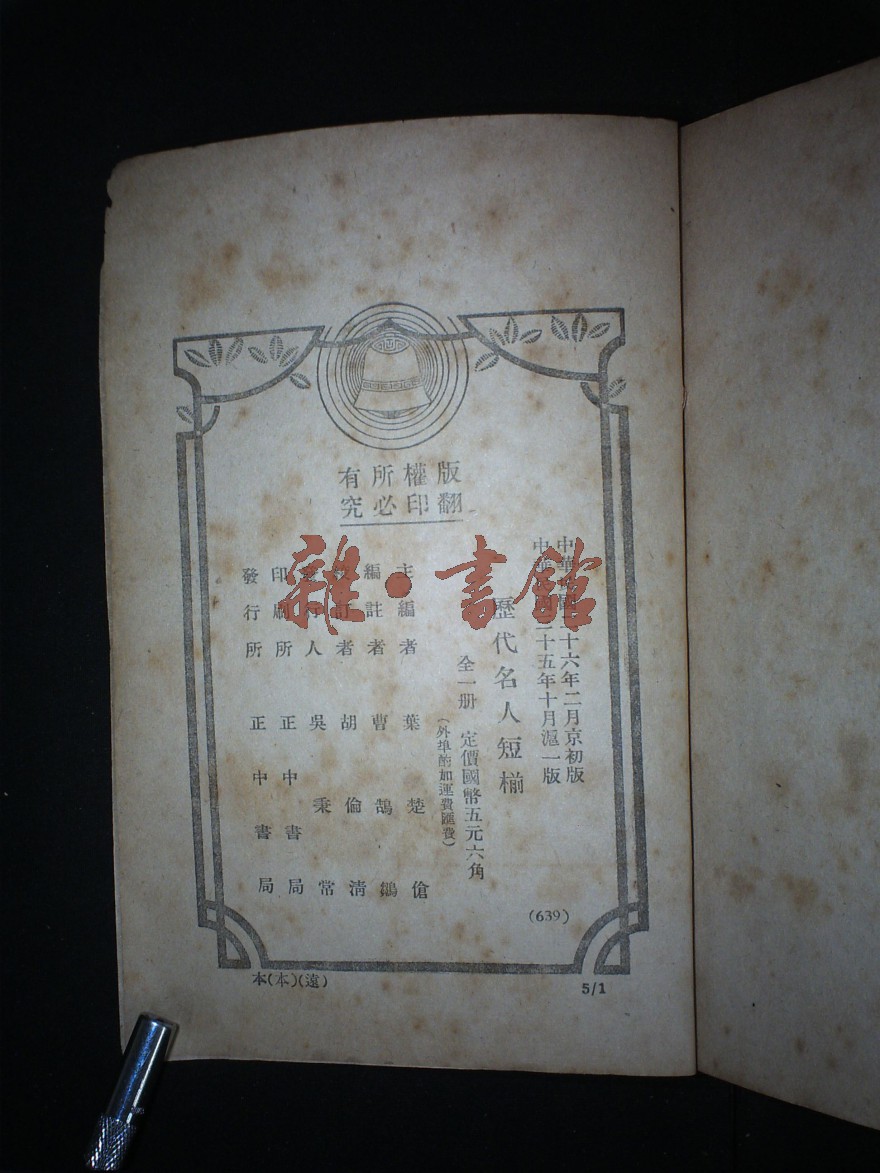 版權所有
翻印必究
中華民國二十六年二月京初版
中華民國三十五年十月滬一版
歷代名人短榍
全一册 定價國幣五元六角
(外埠酌加運費匯費)
主編者 葉楚傖
編註者 曹鵠雛
校訂者 胡倫清
發行人 吳秉常
印刷所 正中書局
發行所 正中書局
(639)
本(本)(遠)
5/1
雜·書館